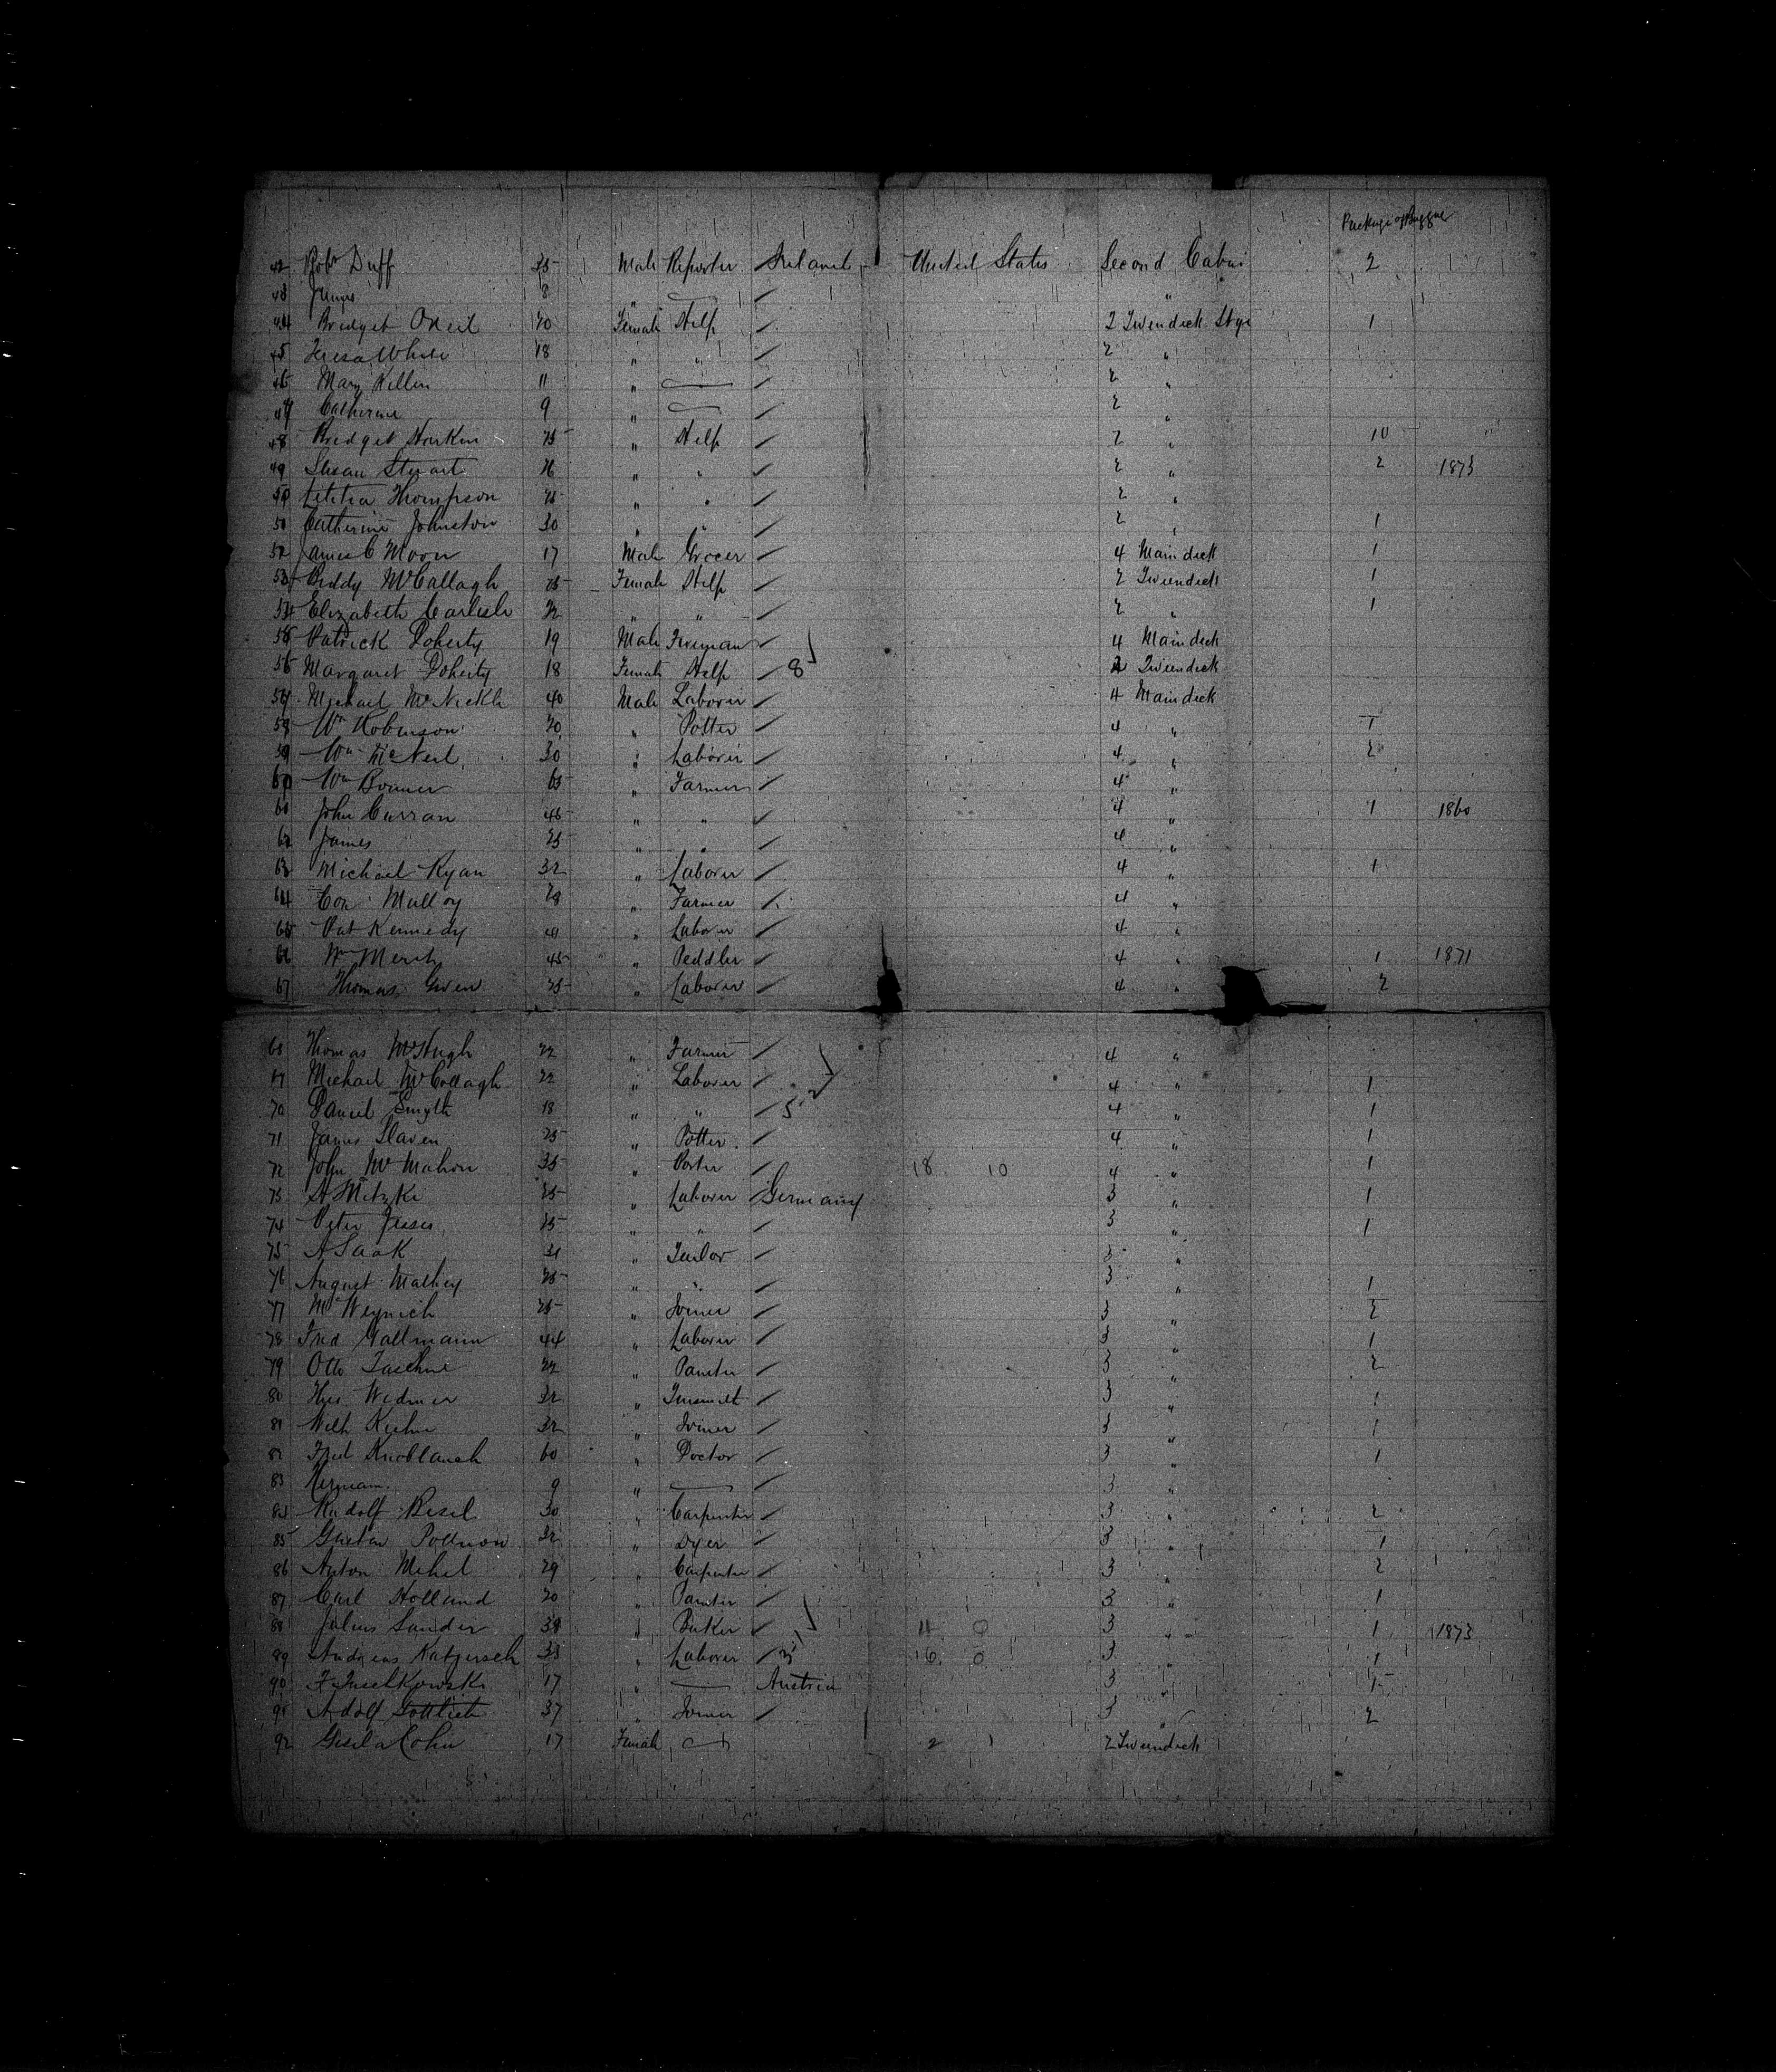 Package of Baggage
42 Robt Duff 35 Male Reporter Ireland United States Second Cabin 2
43 James 8 " — "
44 Bridget ONeil 20 Female Help 2 Tweendeck Stge 1
45 Teresa White 18 " " 2 "
46 Mary Killen 11 " — 2 "
47 Catherine 9 " — 2 "
48 Bridget Harkin 25 " Help 2 " 10
49 Susan Stuart 26 " " 2 " 2 1873
50 Letitia Thompson 25 " " 2 "
51 Catherine Johnston 30 " " 2 " 1
52 James C Moon 17 Male Grocer 4 Maindeck 1
53 Biddy McCallagh 25 Female Help 2 Tweendeck 1
54 Elizabeth Carlisle 22 " " 2 " 1
55 Patrick Doherty 19 Male Fireman 4 Maindeck
56 Margaret Doherty 18 Female Help 8 2 Tweendeck
57 Michael McNickle 40 Male Laborer 4 Maindeck
58 Wm Robinson 20 " Potter 4 " 1
59 Wm McNeil 30 " Laborer 4 " 2
60 Wm Bonner 65 " Farmer 4 "
61 John Curran 46 " " 4 " 1 1860
62 James 25 " " 4 "
63 Michael Ryan 32 " Laborer 4 " 1
64 Con Mulloy 28 " Farmer 4 "
65 Pat Kennedy " Laborer 4 "
66 Wm 45 " Peddler 4 " 1 1871
67 Thomas 25 " Laborer 4 " 2
68 Thomas McHugh 22 " Farmer 4 "
69 Michael McCollagh 22 " Laborer 4 " 1
70 Daniel Smyth 18 " " 4 " 1
71 James Slaven 25 " Potter 4 " 1
72 John McMahon 35 " Porter 18 10 4 " 1
73 A Mitzki 25 " Laborer Germany 3 " 1
74 Peter " " 3 " 1
75 A Saak 31 " Tailor 3 "
76 August Mathey 25 " " 3 " 1
77 Weynich 25 " Joiner 3 " 2
78 Fred Gallmann 44 " Laborer 3 " 1
79 Otto 22 " Painter 3 " 2
80 Widmer 32 " Tinsmith 3 " 1
81 Wilh Kuhn 32 " Joiner 3 " 1
82 Fred Knoblauch 60 " Doctor 3 " 1
83 Herman 9 " — 3 "
84 Rudolf Besel 30 " Carpenter 3 " 2
85 Gustav Pollnow 32 " Dyer 3 " 1
86 Anton Mehel 29 " Carpenter 3 " 2
87 Carl Holland 20 " Painter 3 " 1
88 Julius Sander " Baker 11 0 3 " 1 1873
89 Andreas 33 " Laborer 16 0 3 " 1
90 17 " — Austria 3 " 1
91 Adolf Gottlieb 37 " Joiner 3 " 2
92 Gisela Cohn 17 Female — 2 1 2 Tweendeck